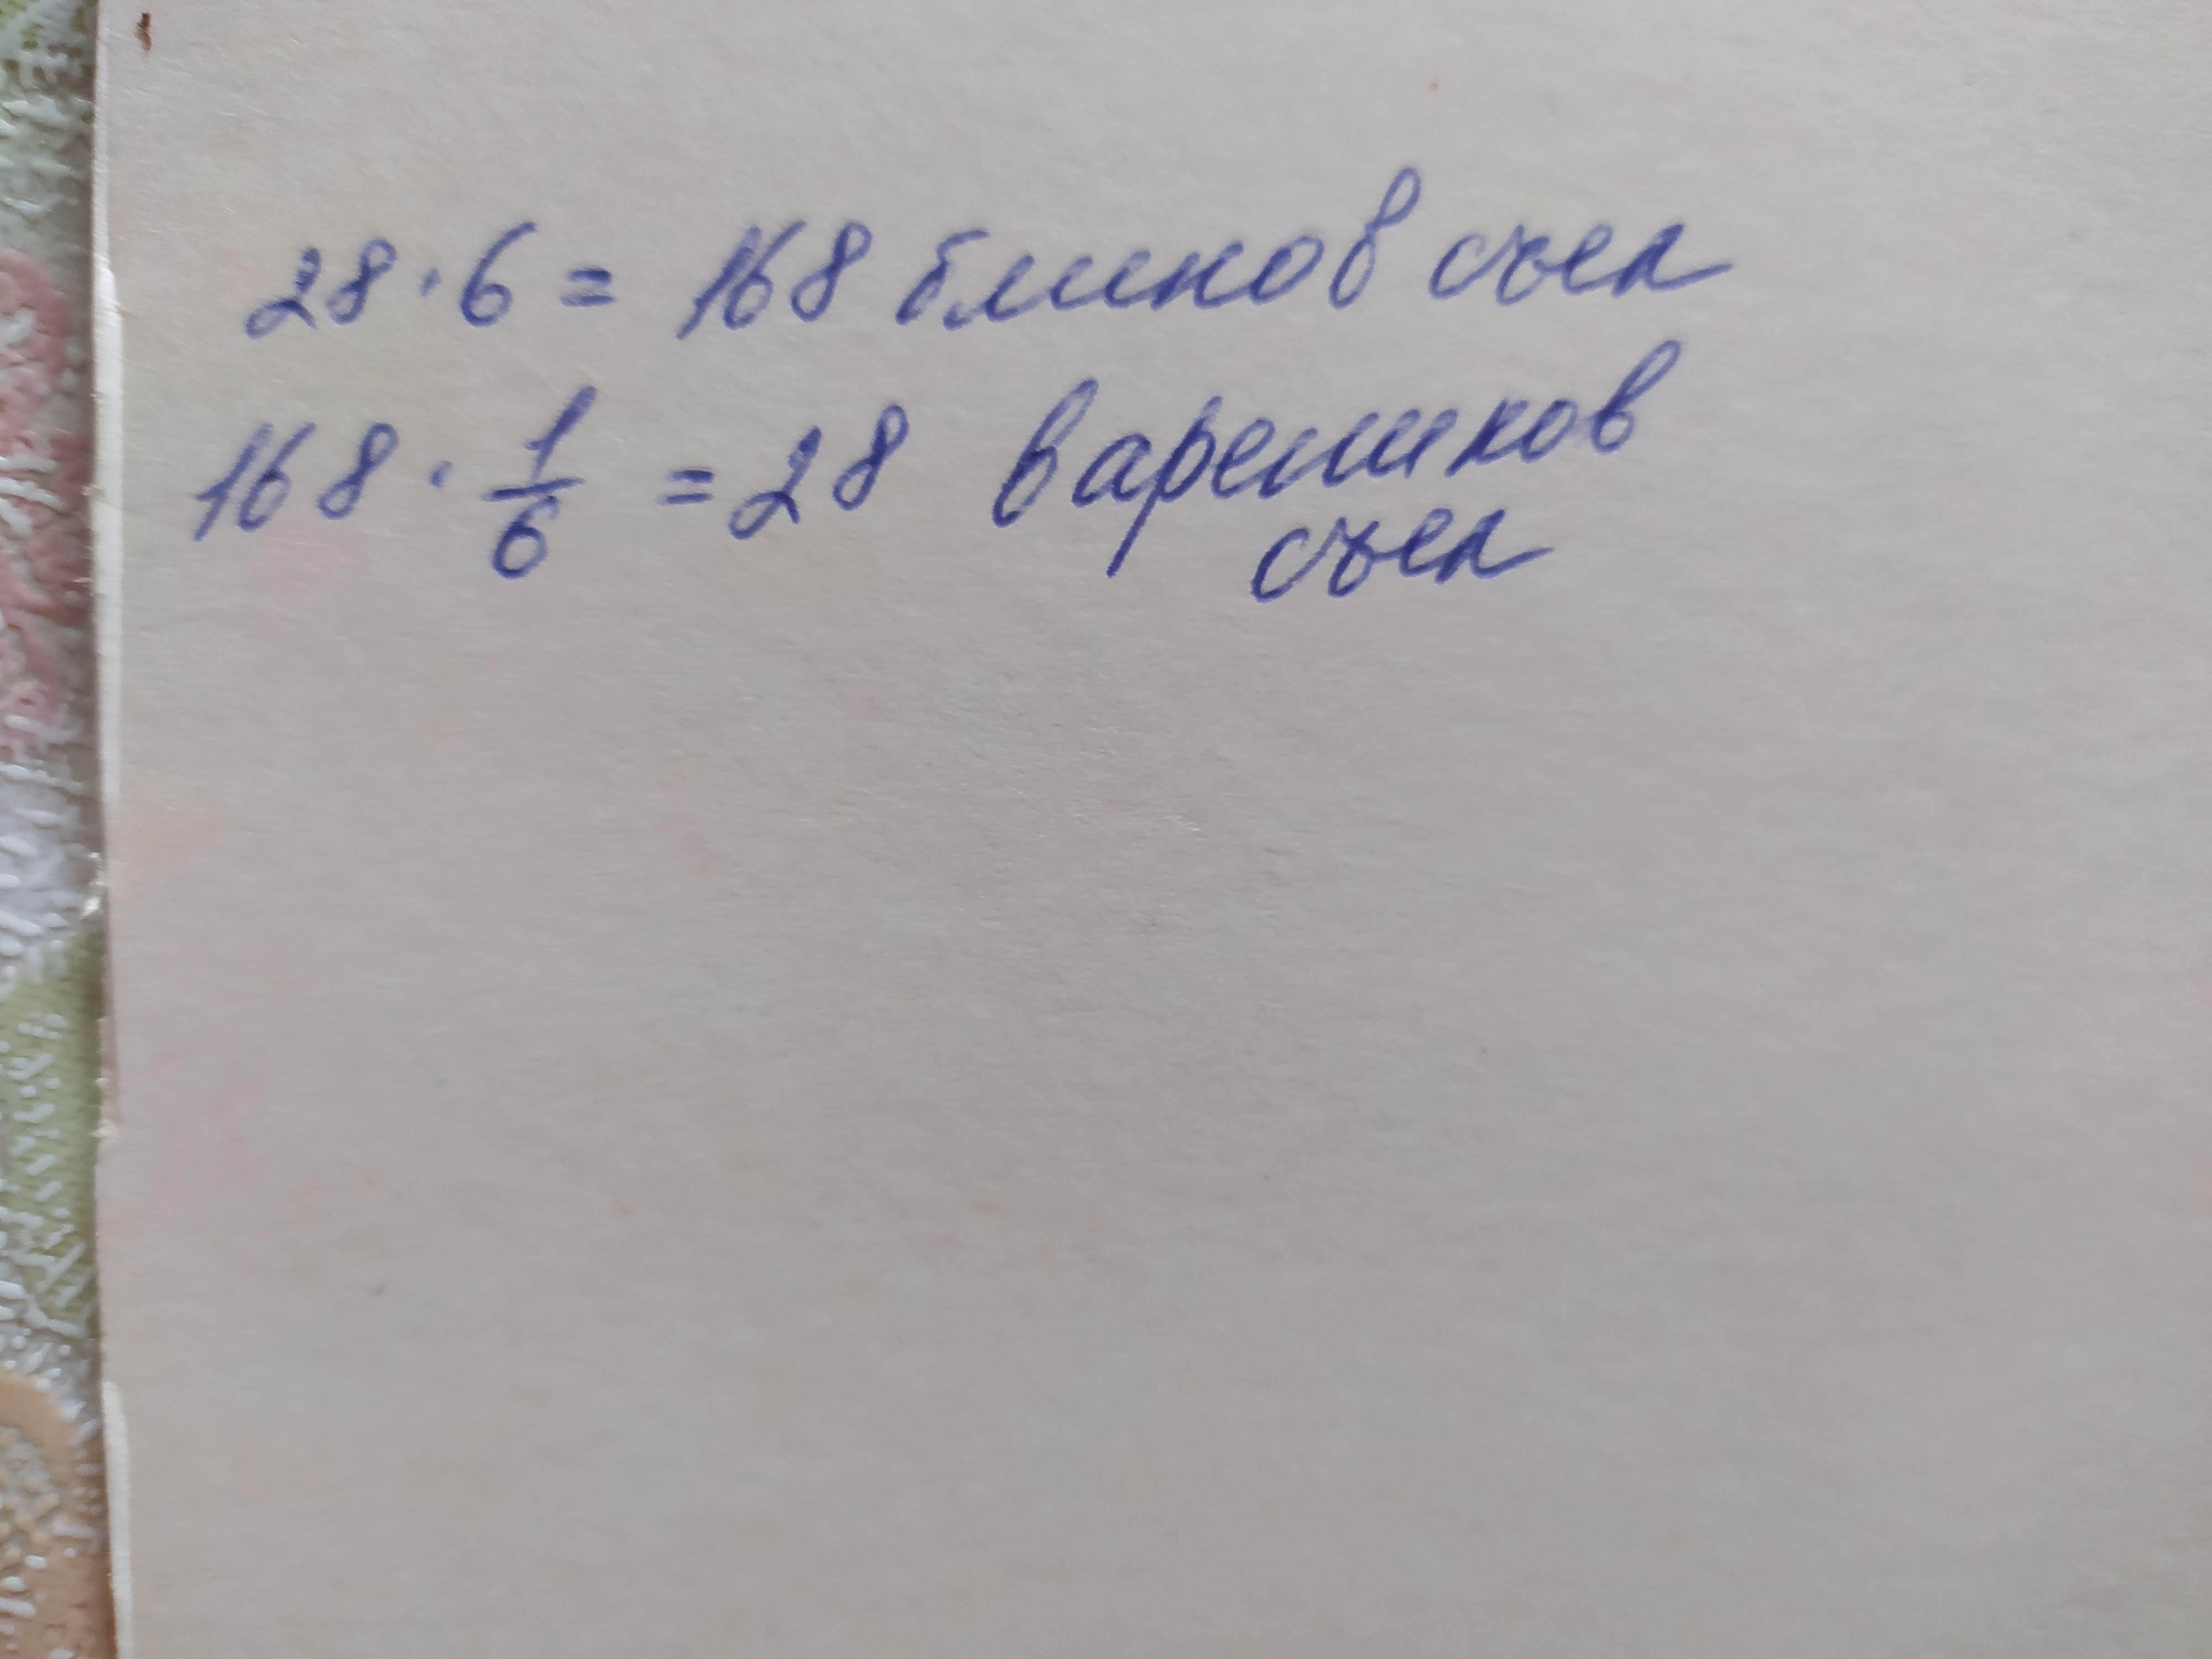 28 · 6 = 168 блинов съел
168 · 1/6 = 28 вареников
съел